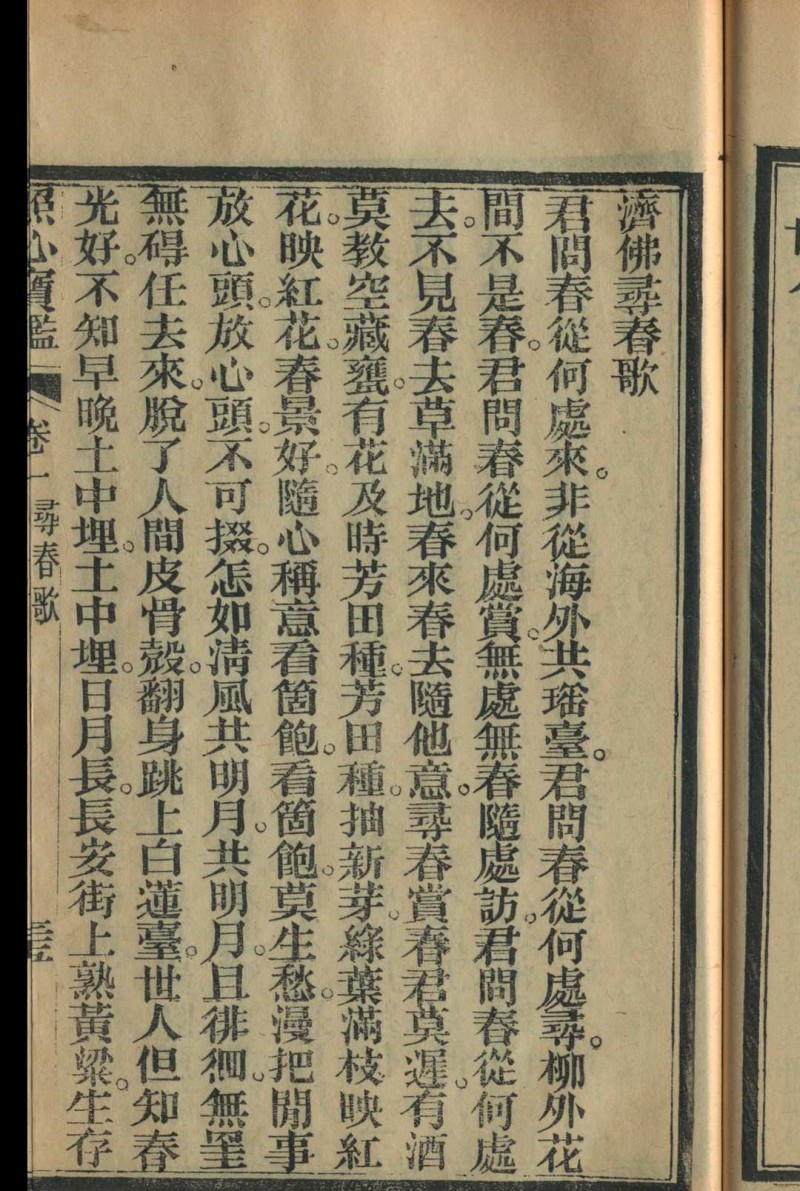 濟佛尋春歌
君問春從何處來。非從海外共瑶臺。君問春從何處尋。柳外花
間不是春。君問春從何處賞。無處無春隨處訪。君問春從何處
去。不見春去草滿地。春來春去隨他意。尋春賞春君莫遲。有酒
莫教空藏甕。有花及時芳田種。芳田種。抽新芽。綠葉滿枝映紅
花。花映紅花。春景好。隨心稱意看箇飽。看箇飽。莫生愁。漫把閒事
放心頭。放心頭。不可掇。怎如清風共明月。共明月。且徘徊。無罣
無碍任去來。脫了人間皮骨殼。翻身跳上白蓮臺。世人但知春
光好。不知早晚土中埋。土中埋。日月長。長安街上熟黃粱。生存
照心寶鑑 卷一 尋春歌